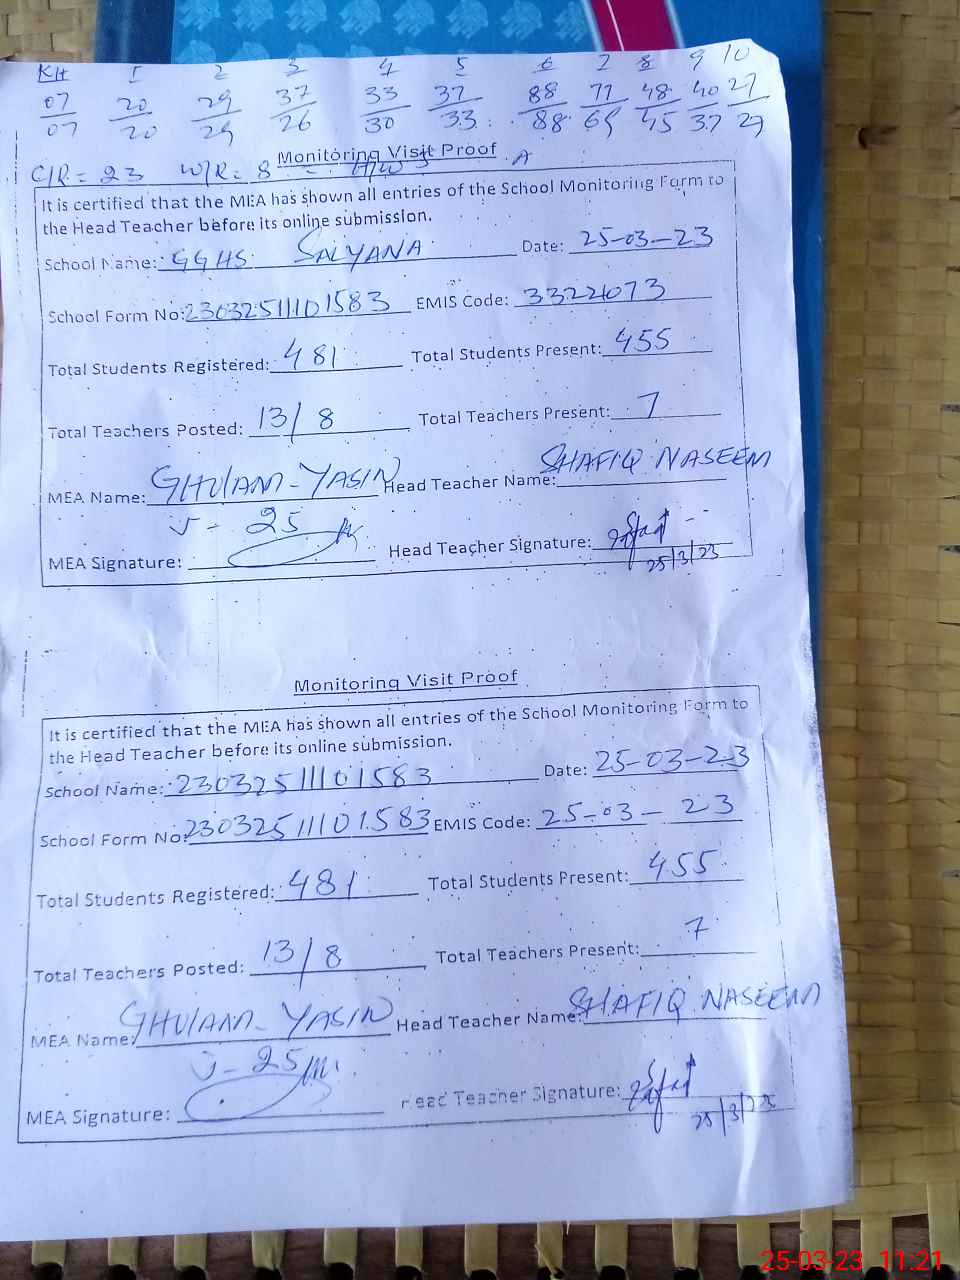 KH 1 2 3 4 5 6 7 8 9 10
07 20 29 37 33 37 88 77 48 40 27
07 20 29 26 30 33 88 69 45 37 27
Monitoring Visit Proof
C/R = 23 W/R = 8 A
It is certified that the MEA has shown all entries of the School Monitoring Form to
the Head Teacher before its online submission.
School Name: GGHS SALYANA Date: 25-03-23
School Form No: 230325111101583 EMIS Code: 33224073
Total Students Registered: 481 Total Students Present: 455
Total Teachers Posted: 13/8 Total Teachers Present: 7
MEA Name: GHULAM-YASIN Head Teacher Name: SHAFIQ NASEEM
V-25
MEA Signature: Head Teacher Signature:
25/3/23
Monitoring Visit Proof
It is certified that the MEA has shown all entries of the School Monitoring Form to
the Head Teacher before its online submission.
School Name: 230325111101583 Date: 25-03-23
School Form No: 230325111101583 EMIS Code: 25-03-23
Total Students Registered: 481 Total Students Present: 455
Total Teachers Posted: 13/8 Total Teachers Present: 7
MEA Name: GHULAM-YASIN Head Teacher Name: SHAFIQ NASEEM
V-25
MEA Signature: Head Teacher Signature:
25/3/23
25-03-23 11:21